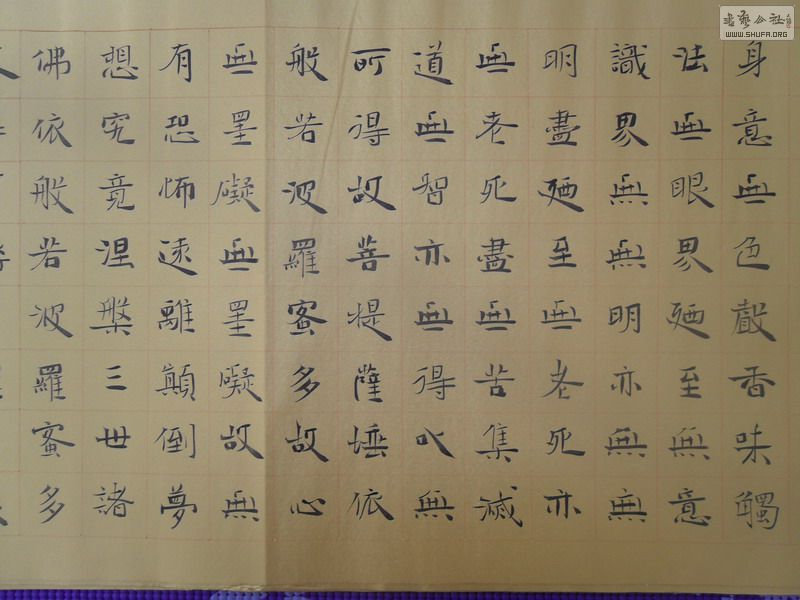 身意無色聲香味觸
法無眼界廼至無意
識界無無明亦無無
明盡廼至無老死亦
無老死盡無苦集滅
道無智亦無得以無
可得故菩提薩埵依
般若波羅蜜多故心
無罣礙無罣礙故無
有恐怖遠離顛倒夢
想究竟涅槃三世諸
佛依般若波羅蜜多
書藝公社
WWW.SHUFA.ORG